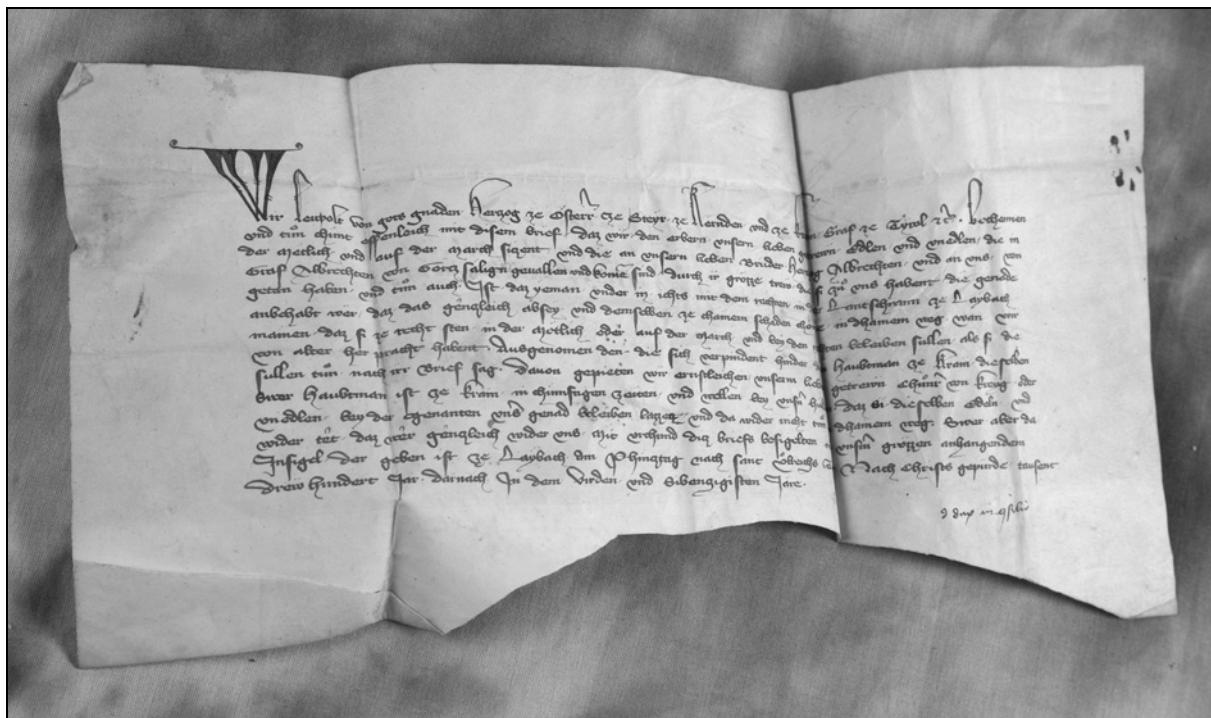 Wir Leupolt von gots gnaden Herzog ze Osterr ze Steyr ze Kernden und ze Krain Graf ze Tyrol etc. Bechennen
und tun chunt offenleich mit disem brief daz wir den erbern unsern lieben getrewn Edlen und unedlen die in
der Metlich und auf der March siczent und die an unsern lieben Bruder Herzog Albrechten und an uns von
Graf Albrechten von Görcz saligñ geuallen und kome sind durch ir grözze trew die si zu uns habent die genade
getan haben und tun auch Ist daz yeman under in ichts mit dem rechten in der Lantschrann ze Laybach
anbehabt wer daz das genczleich absey und demselben ze chainem schaden chome in dhainem weg wan wir
mainen daz si ze recht sten in der Metlich oder auf der March und bey den rechten beleiben sullen als si die
von alter her pracht habent Ausgenomen den die sich verpindent hinder die haubtman ze Krain dieselben
sullen tun nach irr brief sag Dauon gepieten wir ernstleichen unserm lieben getrewn Chunr von Kreug oder
Swer haubtman ist ze Krain in chunftigen zeiten und wellen bey unsñ hulden daz si dieselben Edeln und
unedlen bey der egenanten unsr genad beleiben lazzen und da wider nicht tun in dhainem weg Swer aber da
wider tet daz wer genczleich wider uns Mit urchund diz briefs besigelten mit unsñ grozzen anhangendem
Insigel der geben ist ze Laybach am Phincztag nach sant Ulreichs tag Nach Christs gepurde tausent
drew hundert Jar darnach In dem Virden und Sibenczigisten Jare
d dux in consilio